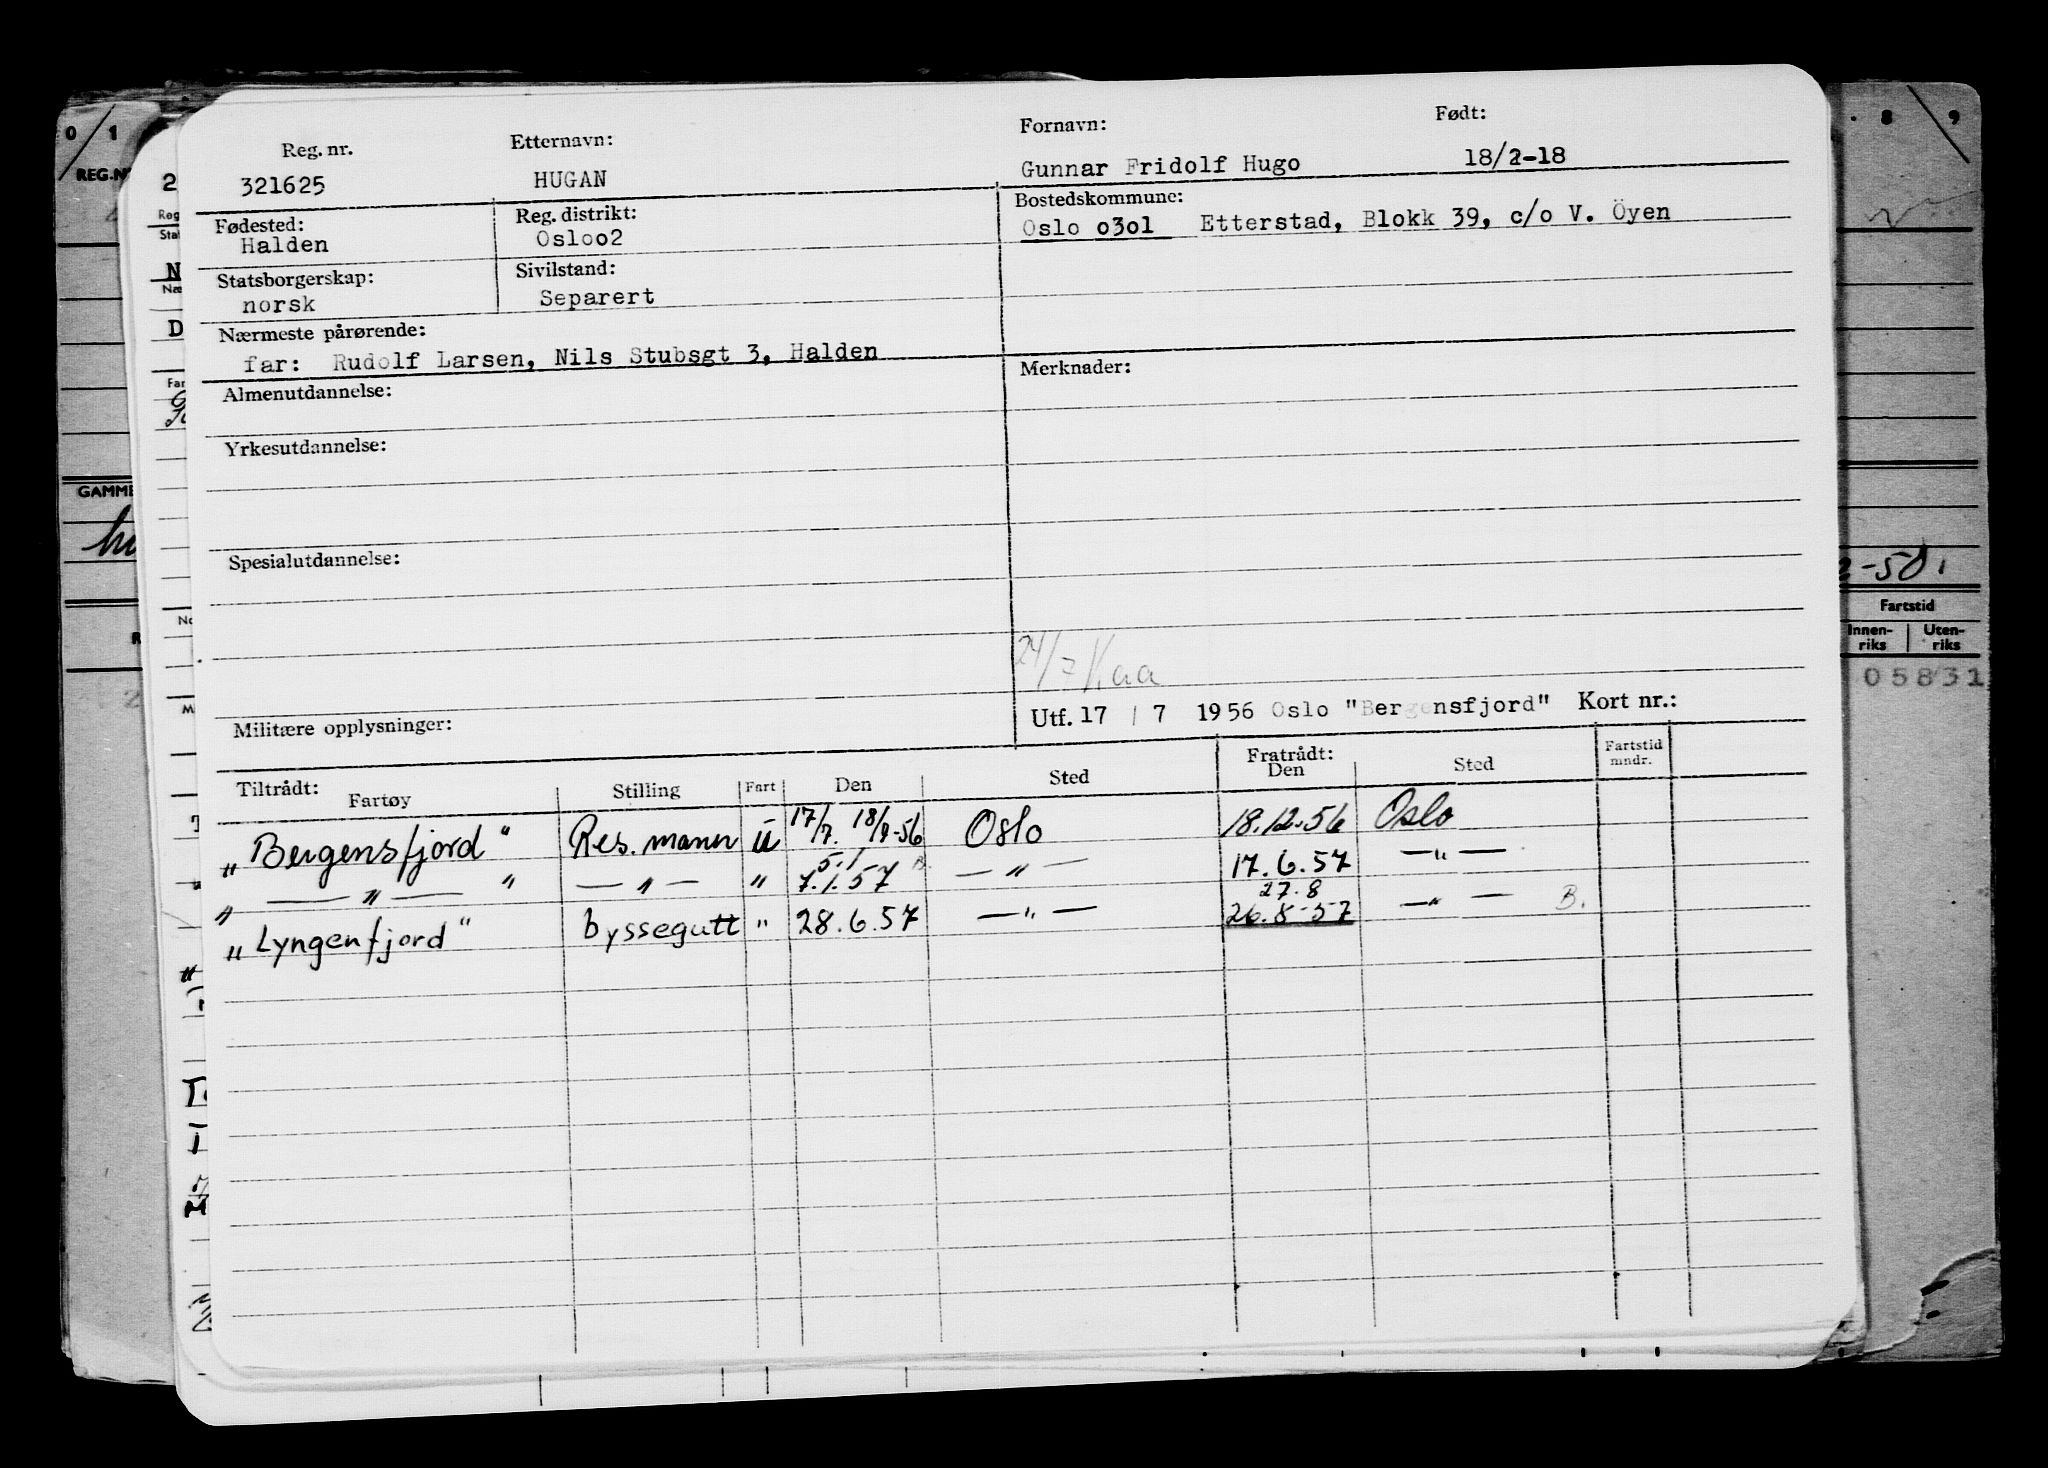 Reg. nr. Etternavn: Fornavn: Født:
321625 HUGAN Gunnar Fridolf Hugo 18/2-18
Fødested: Reg. distrikt: Bostedskommune:
Halden Osloo2 Oslo o3o1 Etterstad, Blokk 39, c/o V. Öyen
Statsborgerskap: Sivilstand:
norsk Separert
Nærmeste pårørende:
far: Rudolf Larsen, Nils Stubsgt 3, Halden
Almenutdannelse: Merknader:
Yrkesutdannelse:
Spesialutdannelse:
24/7
Militære opplysninger: Utf. 17 / 7 1956 Oslo "Bergensfjord" Kort nr.:
Tiltrådt: Fartøy Stilling Fart Den Sted Fratrådt: Den Sted Fartstid mndr.
„Bergensfjord" Res. mann U 17/7. 18/9-56 Oslo 18.12.56 Oslo
„ — „ — " — „ — " 5.1 7.1.57 B. — „ — 17.6.57 — „ —
„Lyngenfjord" byssegutt " 28.6.57 — „ — 27.8 26.8-57 — „ — B.
0/1
REG.N
GAMME
8 9
2-50.
Fartstid
Innen-riks Uten-riks
05831